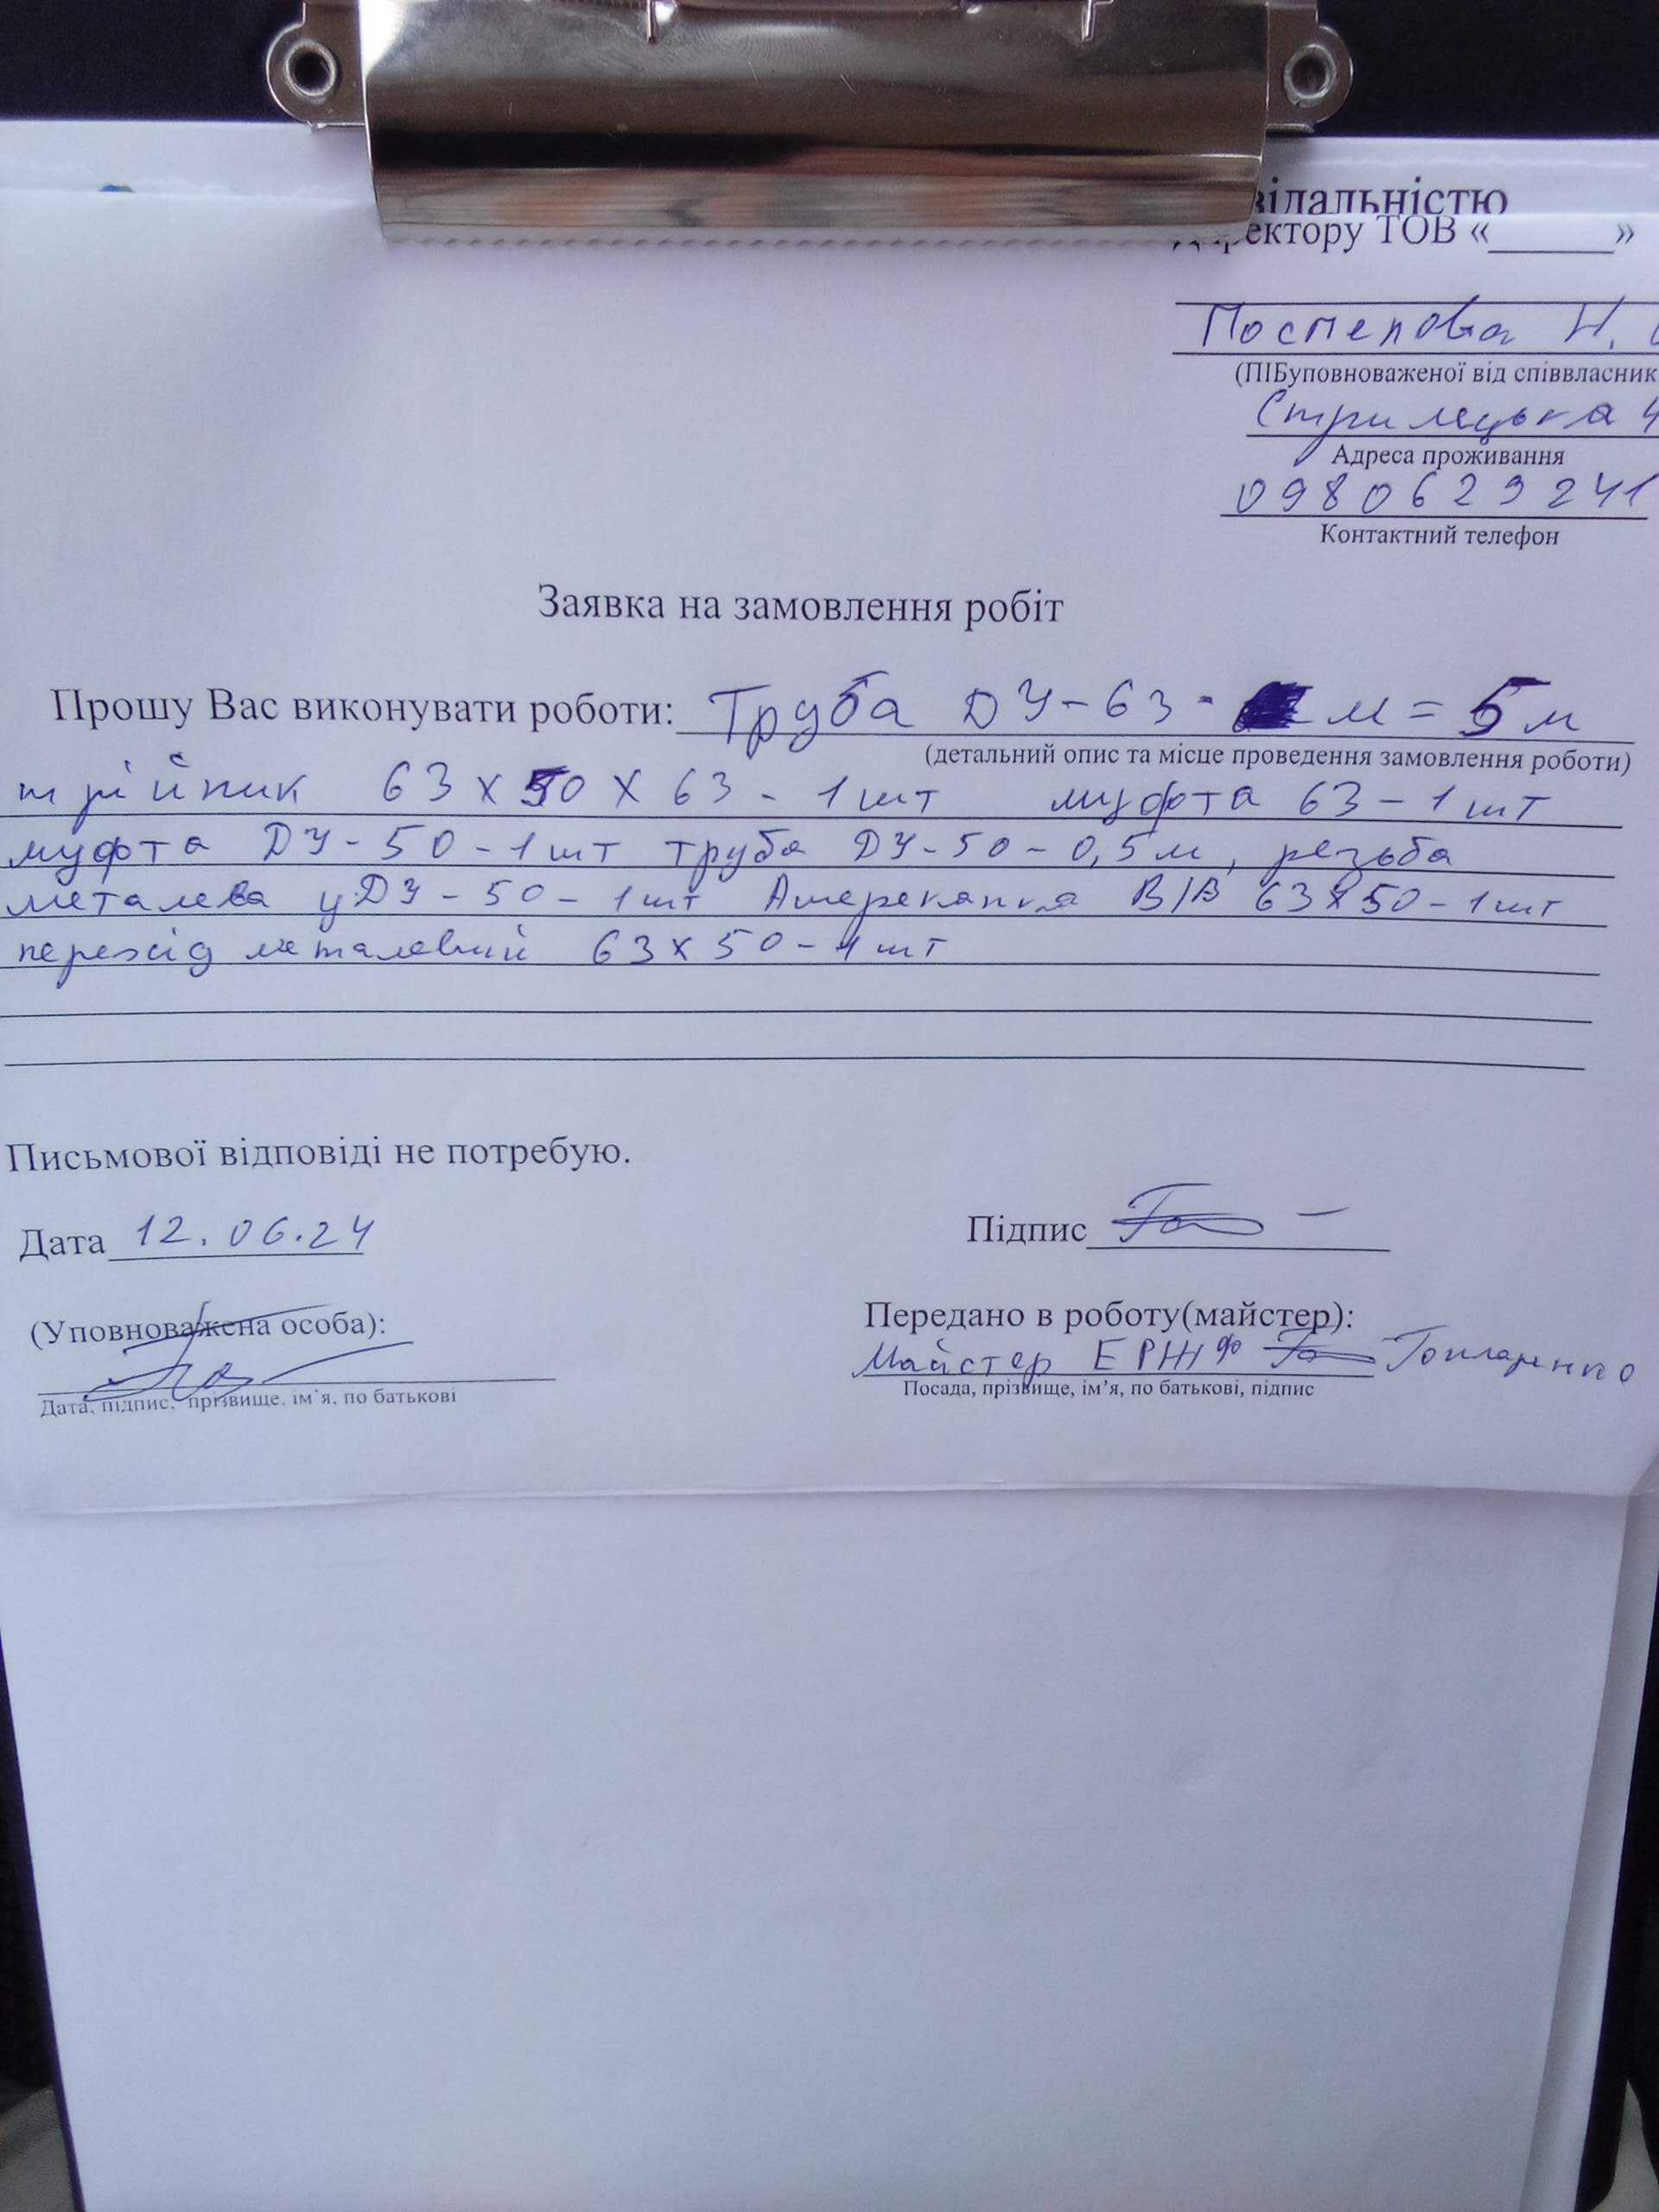 відальністю
Директору ТОВ «______»
Поспелова Н.
(ПІБуповноваженої від співвласник
Стрилецька 4
Адреса проживання
0980629241
Контактний телефон
Заявка на замовлення робіт
Прошу Вас виконувати роботи: Труба ДУ-63- м = 5 м
(детальний опис та місце проведення замовлення роботи)
трійник 63х50х63 - 1 шт муфта 63 - 1 шт
муфта ДУ-50 - 1 шт труба ДУ-50 - 0,5 м, резьба
металева ДУ-50 - 1 шт Амереканка В/В 63х50 - 1 шт
перехід металевий 63х50 - 1 шт
Письмової відповіді не потребую.
Дата 12.06.24
Підпис
(Уповноважена особа):
Передано в роботу(майстер):
Майстер ЕРЖФ Гончаренко
Дата, підпис, прізвище, ім`я, по батькові
Посада, прізвище, ім’я, по батькові, підпис